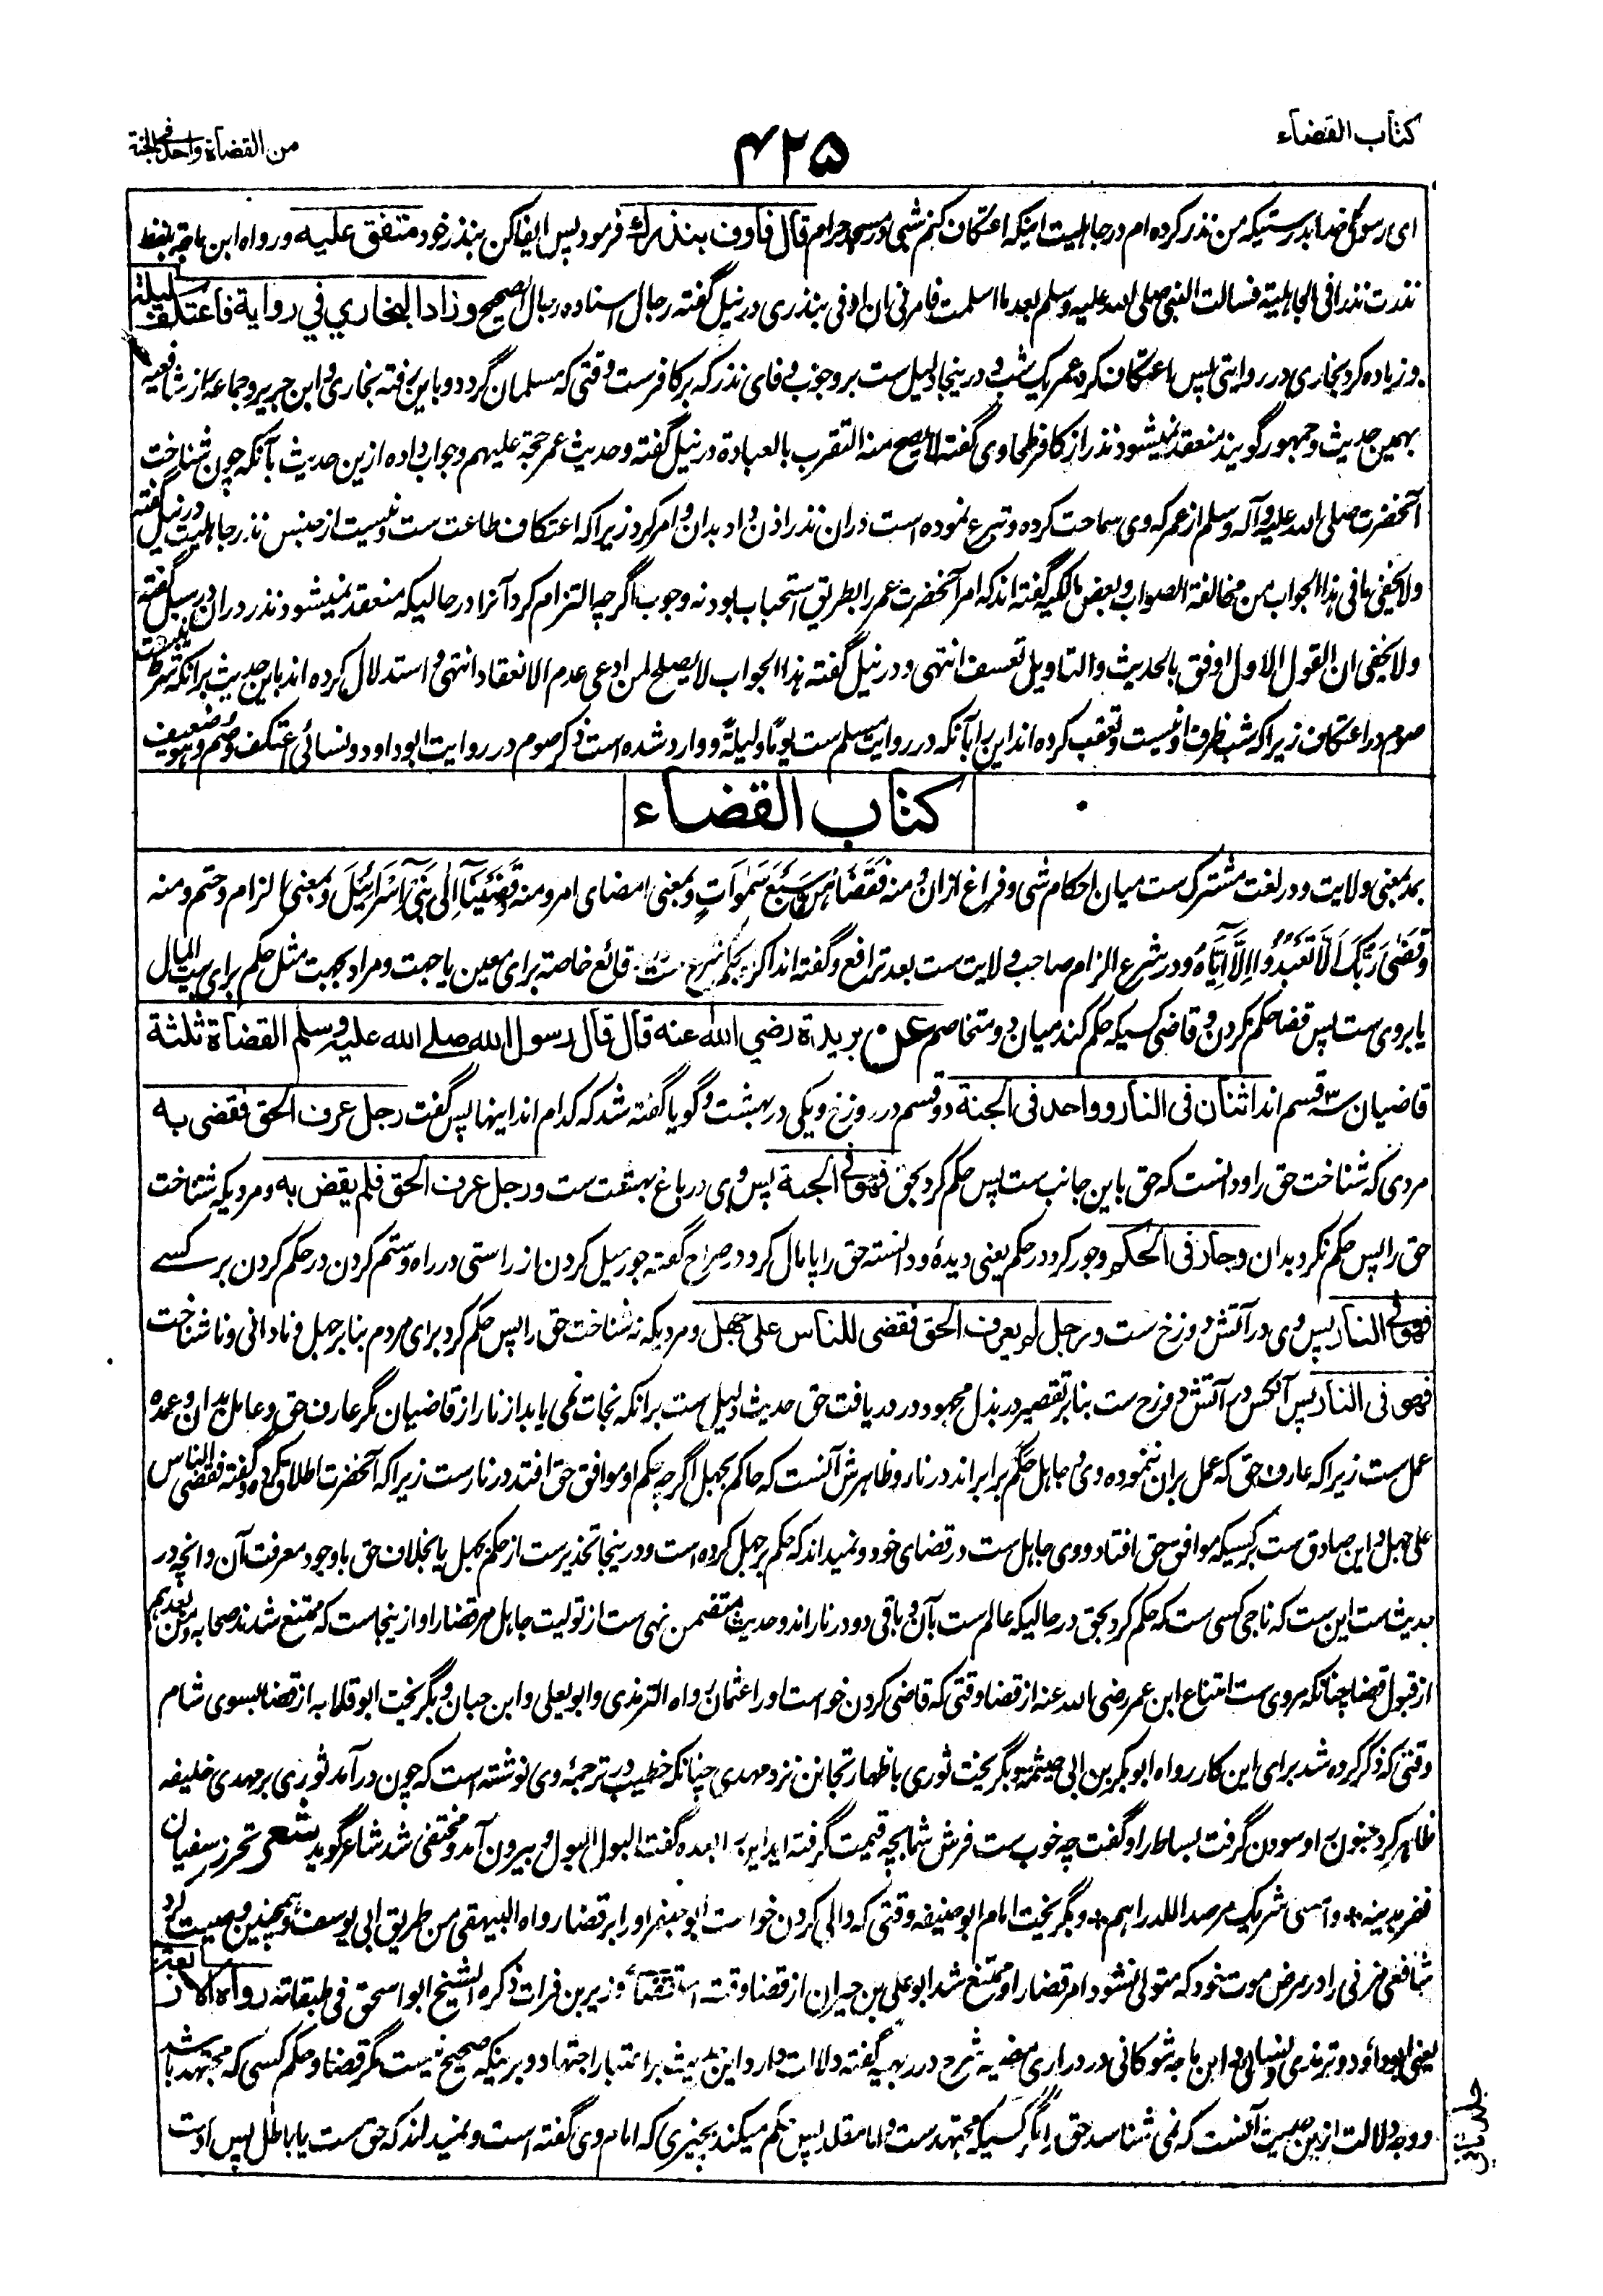 كتاب القضاء
۴۲۵
من القضاة واحد في الجنة
ای رسول خدا بدرستیکه من نذر کرده ام در جاهلیت اینکه اعتکاف کنم شبی در مسجد حرام قال فاوف بنذرك فرمود پس ایفا کن بنذر خود متفق عليه ورواه ابن ماجه بلفظ
نذرت نذرا فی الجاهلیة فسالت النبی صلی الله علیه وسلم بعد ما اسلمت فامرنی ان اوفی بنذری در نیل گفته رجال اسناده رجال الصحیح وزاد البخاري في رواية فاعتكف ليلة
و زیاده کرد بخاری در روایتی پس اعتکاف کرد عمر یک شب و درینجا دلیل ست بر وجوب وفای نذر که بر کافرست وقتی که مسلمان گردد و باین رفته بخاری و ابن جریر وجماعه از شافعیه
بهمین حدیث و جمهور گویند منعقد نمیشود نذر از کافر طحاوی گفته لا یصح منه التقرب بالعبادة در نیل گفته وحدیث عمر حجة علیهم وجواب داده ازین حدیث بآنکه چون شناخت
آنحضرت صلی الله علیه وآله وسلم از عمر که وی سماحت کرده و تبرع نموده است دران نذر اذن داد بدان و امر کرد زیرا که اعتکاف طاعت ست و نیست از جنس نذر جاهلیت در نیل گفته
ولا یخفی ما فی هذا الجواب من مخالفة الصواب و بعض مالکیه گفته اند که امر آنحضرت عمر را بطریق استحباب بود نه وجوب اگرچه التزام کرد آنرا در حالیکه منعقد نمیشود نذر دران در سبل گفته
ولا یخفی ان القول الاول اوفق بالحدیث والتاویل تعسف انتهی و در نیل گفته هذا الجواب لا یصلح لمن ادعی عدم الانعقاد انتهی و استدلال کرده اند باین حدیث برانکه شرط نیست
صوم در اعتکاف زیرا که شب ظرف او نیست و تعقب کرده اند این را بآنکه در روایت مسلم ست یوما ولیلة و وارد شده است ذکر صوم در روایت ابوداود و نسائی اعتکف وصم وهو ضعیف
كتاب القضاء
بمد بمعنی ولایت و در لغت مشترک ست میان احکام شی و فراغ ازان ومنه فَقَضٰهُنَّ سَبْعَ سَمٰوَاتٍ وبمعنی امضای امر ومنه وَقَضَيْنَا إِلَىٰ بَنِي إِسْرَائِيلَ وبمعنی الزام وحتم ومنه
وَقَضٰى رَبُّكَ أَلَّا تَعْبُدُوا إِلَّا إِيَّاهُ و در شرع الزام صاحب ولایت ست بعد ترافع و گفته اند اکراه بحکم شرع ست وقائع خاصه برای معین یا جهت ومراد بجهت مثل حکم برای بیت المال
یا بروی ست پس قضا حکم کردن و قاضی کسیکه حکم کند میان دو متخاصم عن بريدة رضي الله عنه قال قال رسول الله صلى الله عليه وسلم القضاة ثلثة
قاضیان سه قسم اند اثنان في النار وواحد في الجنة دو قسم در دوزخ و یکی در بهشت و گویا گفته شد که کدام اند اینها پس گفت رجل عرف الحق فقضى به
مردی که شناخت حق را و دانست که حق باین جانب ست پس حکم کرد بحق فهو في الجنة پس وی در باغ بهشت ست ورجل عرف الحق فلم يقض به و مردیکه شناخت
حق را پس حکم نکرد بدان وجار في الحكم وجور کرد در حکم یعنی دیده و دانسته حق را پامال کرد در صراح گفته جور میل کردن از راستی در راه و ستم کردن در حکم کردن بر کسے
فهو في النار پس وی در آتش دوزخ ست ورجل لم يعرف الحق فقضى للناس على جهل و مردیکه نه شناخت حق را پس حکم کرد برای مردم بنا بر جهل و نادانی و ناشناخت
فهو في النار پس آنکس در آتش دوزخ ست بنا بر تقصیر در بذل مجهود در دریافت حق حدیث دلیل ست برانکه نجات نمی یابد از نار از قاضیان مگر عارف حق و عامل بدان و عمده
عمل ست زیرا که عارف حق که عمل بران ننموده وی و جاهل حکم برابر اند در نار و ظاهرش آنست که حاکم بجهل اگرچه حکم او موافق حق افتد در نارست زیرا که آنحضرت اطلاق کرده و گفته فقضی للناس
علی جهل و این صادق ست بر کسیکه موافق حق افتاد و وی جاهل ست در قضای خود و نمیداند که حکم بر جهل کرده است و درینجا تحذیرست از حکم بجهل یا بخلاف حق باوجود معرفت آن و انچه در
حدیث ست این ست که ناجی کسی ست که حکم کرد بحق در حالیکه عالم ست بآن و باقی دو در نار اند و حدیث متضمن نهی ست از تولیت جاهل مر قضا را و ازینجاست که ممتنع شدند صحابه ومن بعدهم
از قبول قضا چنانکه مروی ست امتناع ابن عمر رضی الله عنه از قضا وقتی که قاضی کردن خواست او را عثمان رواه الترمذی وابو یعلی وابن حبان و بگریخت ابو قلابه از قضا بسوی شام
وقتی که ذکر کرده شد برای این کار رواه ابوبکر بن ابی خیثمه و بگریخت ثوری باظهار تجانن نزد مهدی چنانکه خطیب در ترجمهٔ وی نوشته است که چون در آمد ثوری بر مهدی خلیفه
ظاهر کرد جنون را و سودن گرفت بساط را و گفت چه خوب ست فرش شما بچه قیمت گرفته اید این را بعده گفته البول البول و بیرون آمد و مختفی شد شاعر گوید شعر تحرز سفیان
ففر بدینه * وامسی شریک مرصدا للدراهم * و بگریخت امام ابو حنیفه وقتی که والی کردن خواست ابو جعفر او را بر قضا رواه البیهقی من طریق ابی یوسف و همچنین وصیت کرد
شافعی مزنی را در مرض موت خود که متولی نشود امر قضا را و ممتنع شد ابو علی بن خیران از قضا وقت استقضاء وزیر بن فرات ذکره الشیخ ابو اسحق فی طبقاته رواه الاربعة
یعنی ابوداود و ترمذی و نسائی و ابن ماجه شوکانی در دراری مضیه شرح درر بهیه گفته دلالت دارد این حدیث بر اعتبار اجتهاد و برینکه صحیح نیست مگر قضا و حکم کسی که مجتهد باشد
و وجه دلالت ازین حدیث آنست که نمی شناسد حق را مگر کسیکه مجتهد ست و اما مقلد پس حکم میکند بچیزی که امام وی گفته است و نمیداند که حق ست یا باطل پس اوست
جلد ثانی